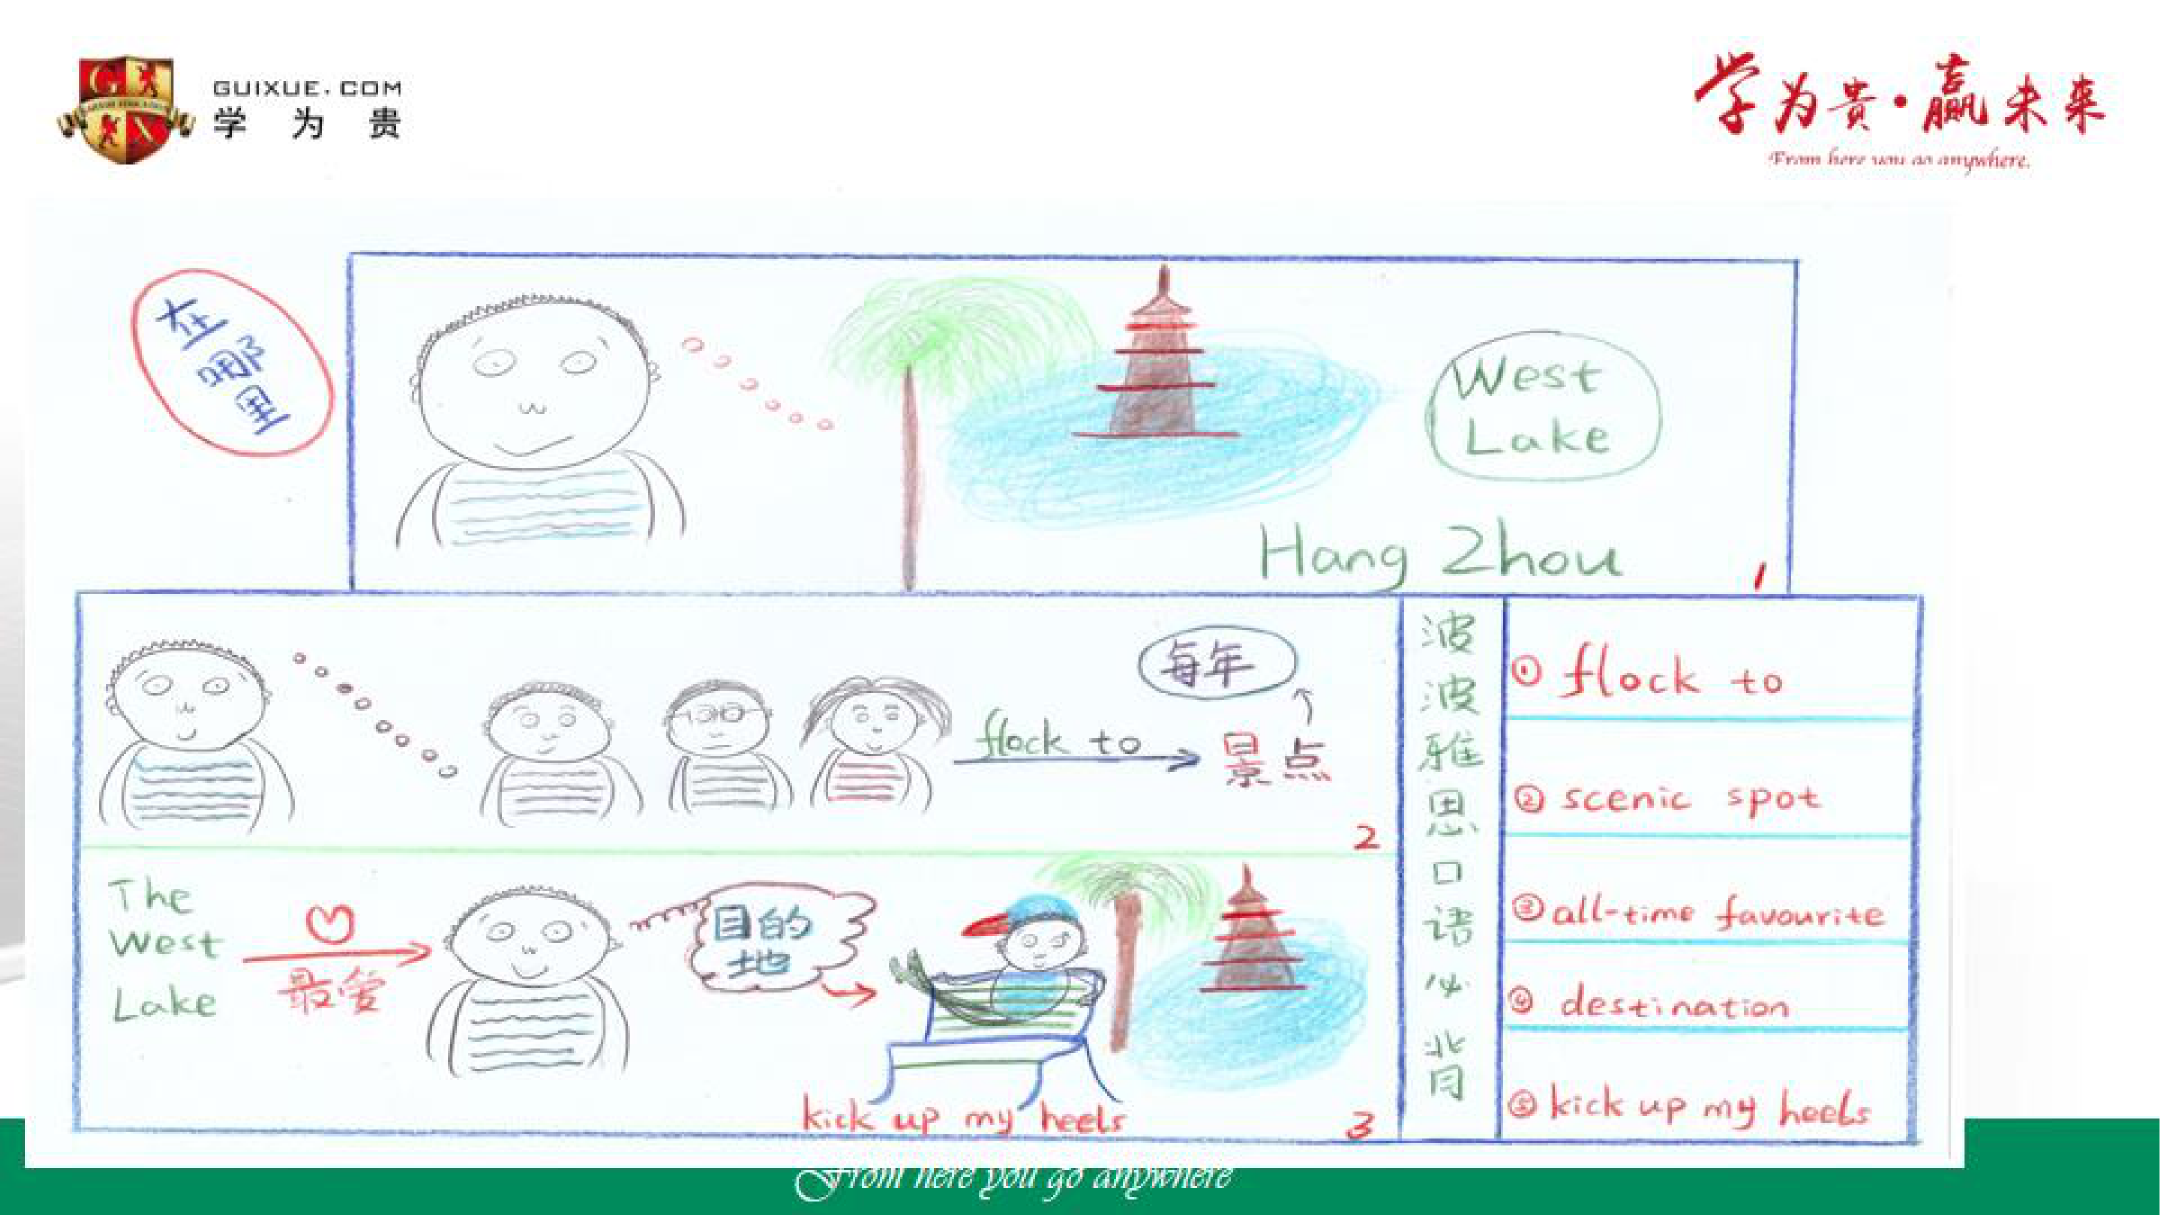 GUIXUE.COM
学为贵
学为贵·赢未来
From here you go anywhere.
在哪里
West
Lake
Hang Zhou
1
每年
flock to
景点
2
The
West
Lake
最爱
目的
地
kick up my heels
3
波波雅思口语必背
① flock to
② scenic spot
③ all-time favourite
④ destination
⑤ kick up my heels
From here you go anywhere